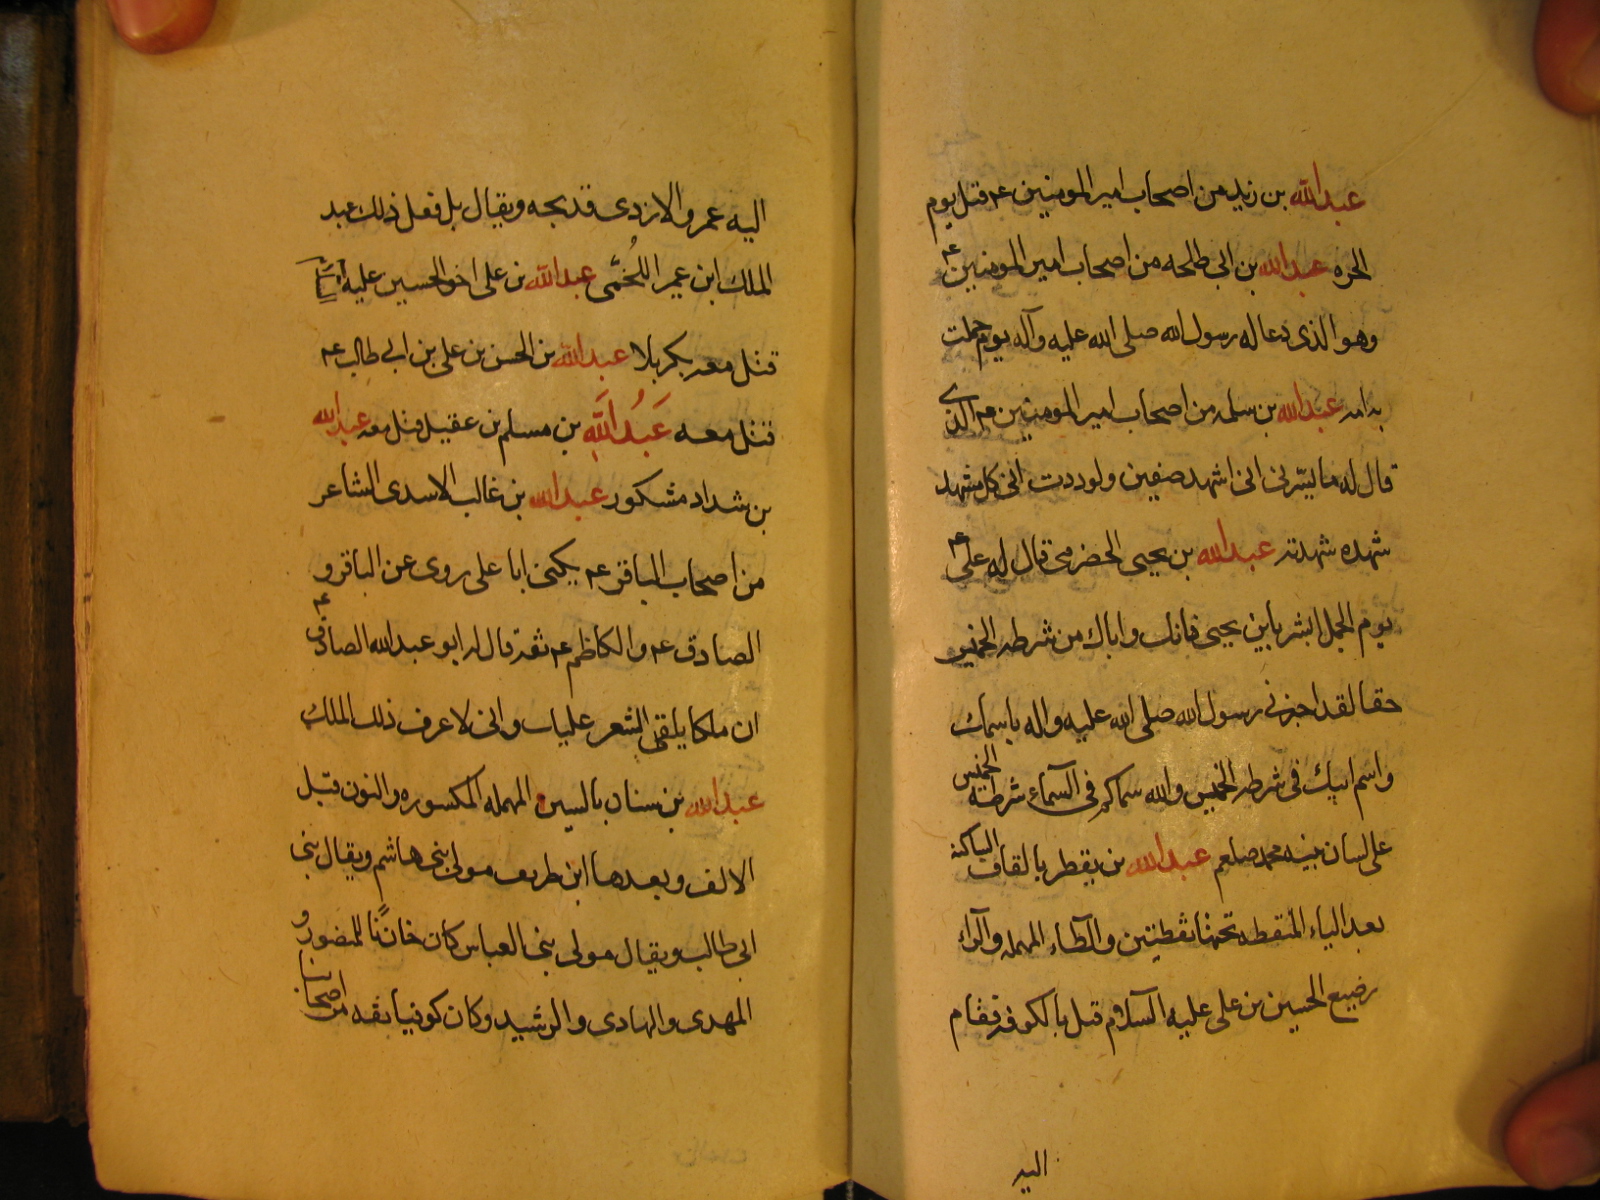 عبدالله بن زيد من اصحاب امير المومنين ع م قتل يوم
الحره عبدالله بن ابى طلحه من اصحاب امير المومنين ع م
وهو الذى دعا له رسول الله صلى الله عليه وآله يوم حملت
به امه عبدالله بن سلمه من اصحاب امير المومنين ع م الذى
قال له ما يسرنى انى اشهد صفين ولوددت انى كل مشهد
شهده شهدته عبدالله بن يحيى الحضرمى قال له على ع م
يوم الجمل ابشر يابن يحيى فانك واباك من شرطه الخميس
حقا لقد اخبرنى رسول الله صلى الله عليه واله باسمك
واسم ابيك فى شرطه الخميس والله سماكم فى السماء شرطة الخميس
على لسان نبيه محمد صلعم عبدالله بن يقطر بالقاف الساكنه
بعد الياء المنقطه تحتها نقطتين والطاء المهمله والراء
رضيع الحسين بن على عليه السلام قتل بالكوفه فقام
اليه
اليه عمرو الازدى فذبحه ويقال بل فعل ذلك عبد
الملك ابن عمير اللخمى عبدالله بن على اخو الحسين عليه
قتل معه بكربلا عبدالله بن الحسن بن على بن ابى طالب ع م
قتل معه عبدالله بن مسلم بن عقيل قتل معه عبدالله
بن شداد مشكور عبدالله بن غالب الاسدى الشاعر
من اصحاب الباقر ع م يكنى ابا على روى عن الباقر و
الصادق ع م والكاظم ع م ثقه قال له ابو عبدالله الصادق ع م
ان ملكا يلقى الشعر عليك وانى لاعرف ذلك الملك
عبدالله بن سنان بالسين المهمله المكسوره والنون قبل
الالف وبعدها ابن طريف مولى بنى هاشم ويقال بنى
ابى طالب ويقال مولى بنى العباس كان خازنا للمنصور و
المهدى والهادى والرشيد وكان كوفيا ثقه من اصحابنا